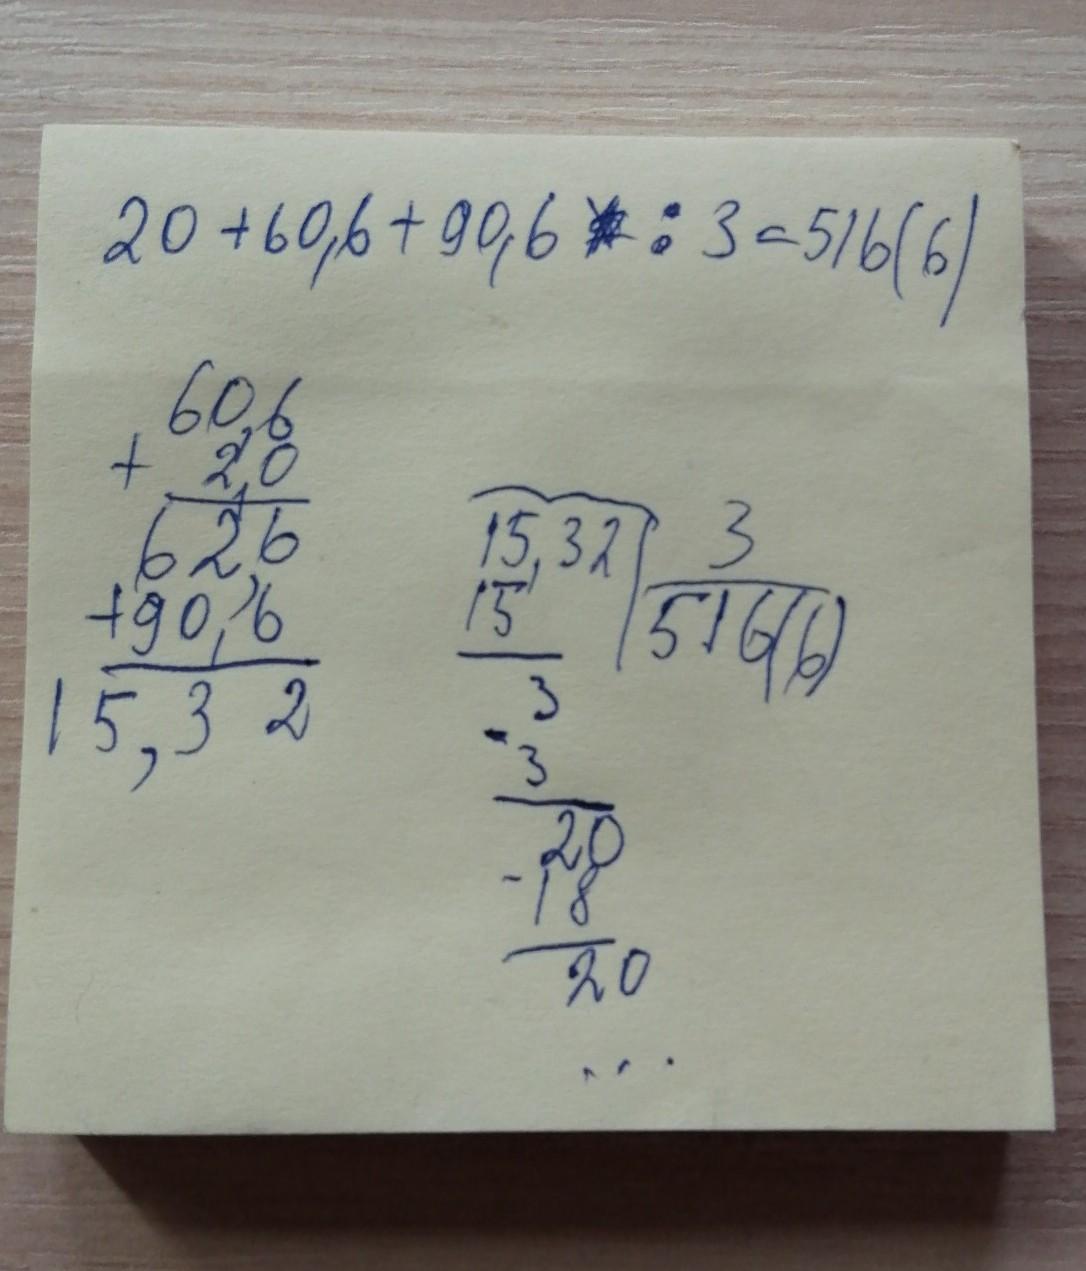 20+60,6+90,6 : 3=516(6)
60,6
+ 2,0
62,6
+90,6
15,3 2
15,32 3
15 516(6)
3
- 3
20
- 18
20
...